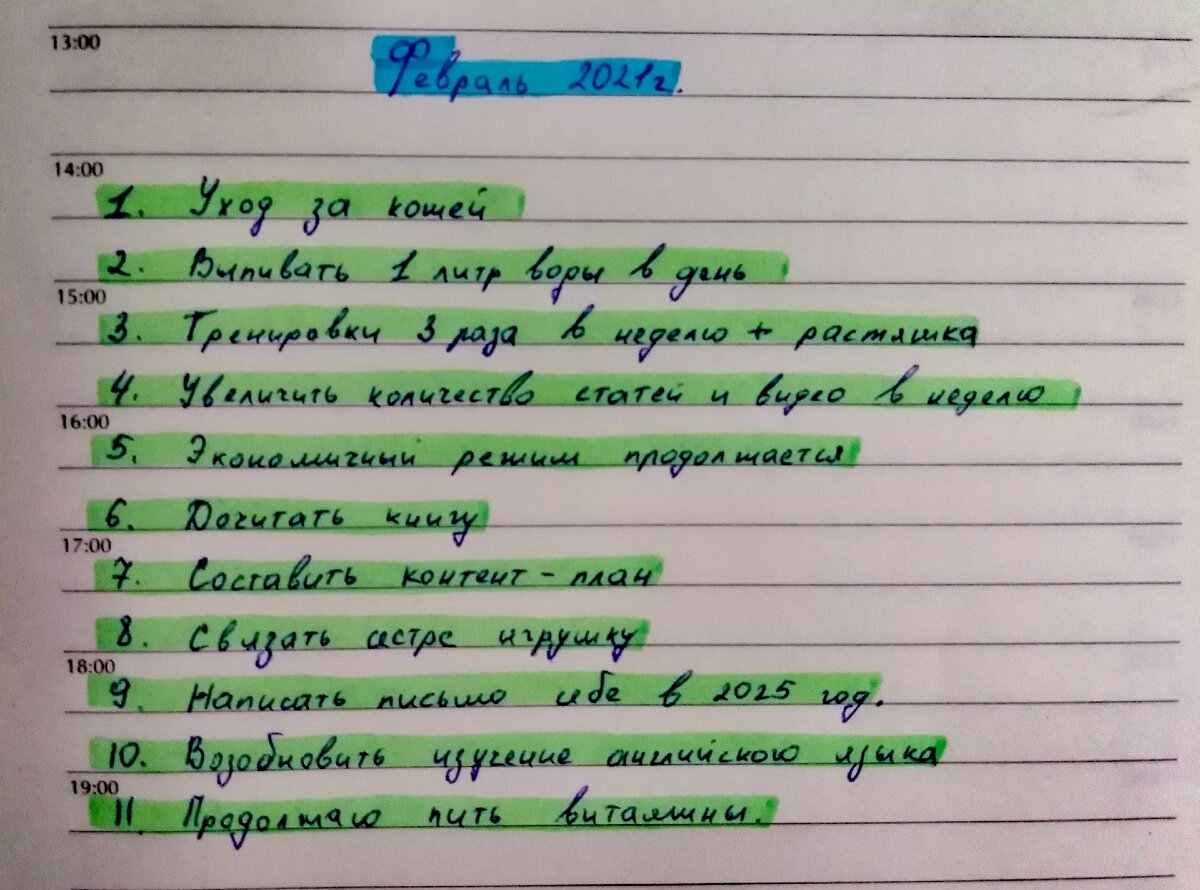 13:00
Февраль 2021г.
14:00
1. Уход за кожей
2. Выпивать 1 литр воды в день
15:00
3. Тренировки 3 раза в неделю + растяжка
4. Увеличить количество статей и видео в неделю
16:00
5. Экономичный режим продолжается
6. Дочитать книгу
17:00
7. Составить контент-план
8. Связать сестре игрушку
18:00
9. Написать письмо себе в 2025 год.
10. Возобновить изучение английского языка
19:00
11. Продолжаю пить витамины.